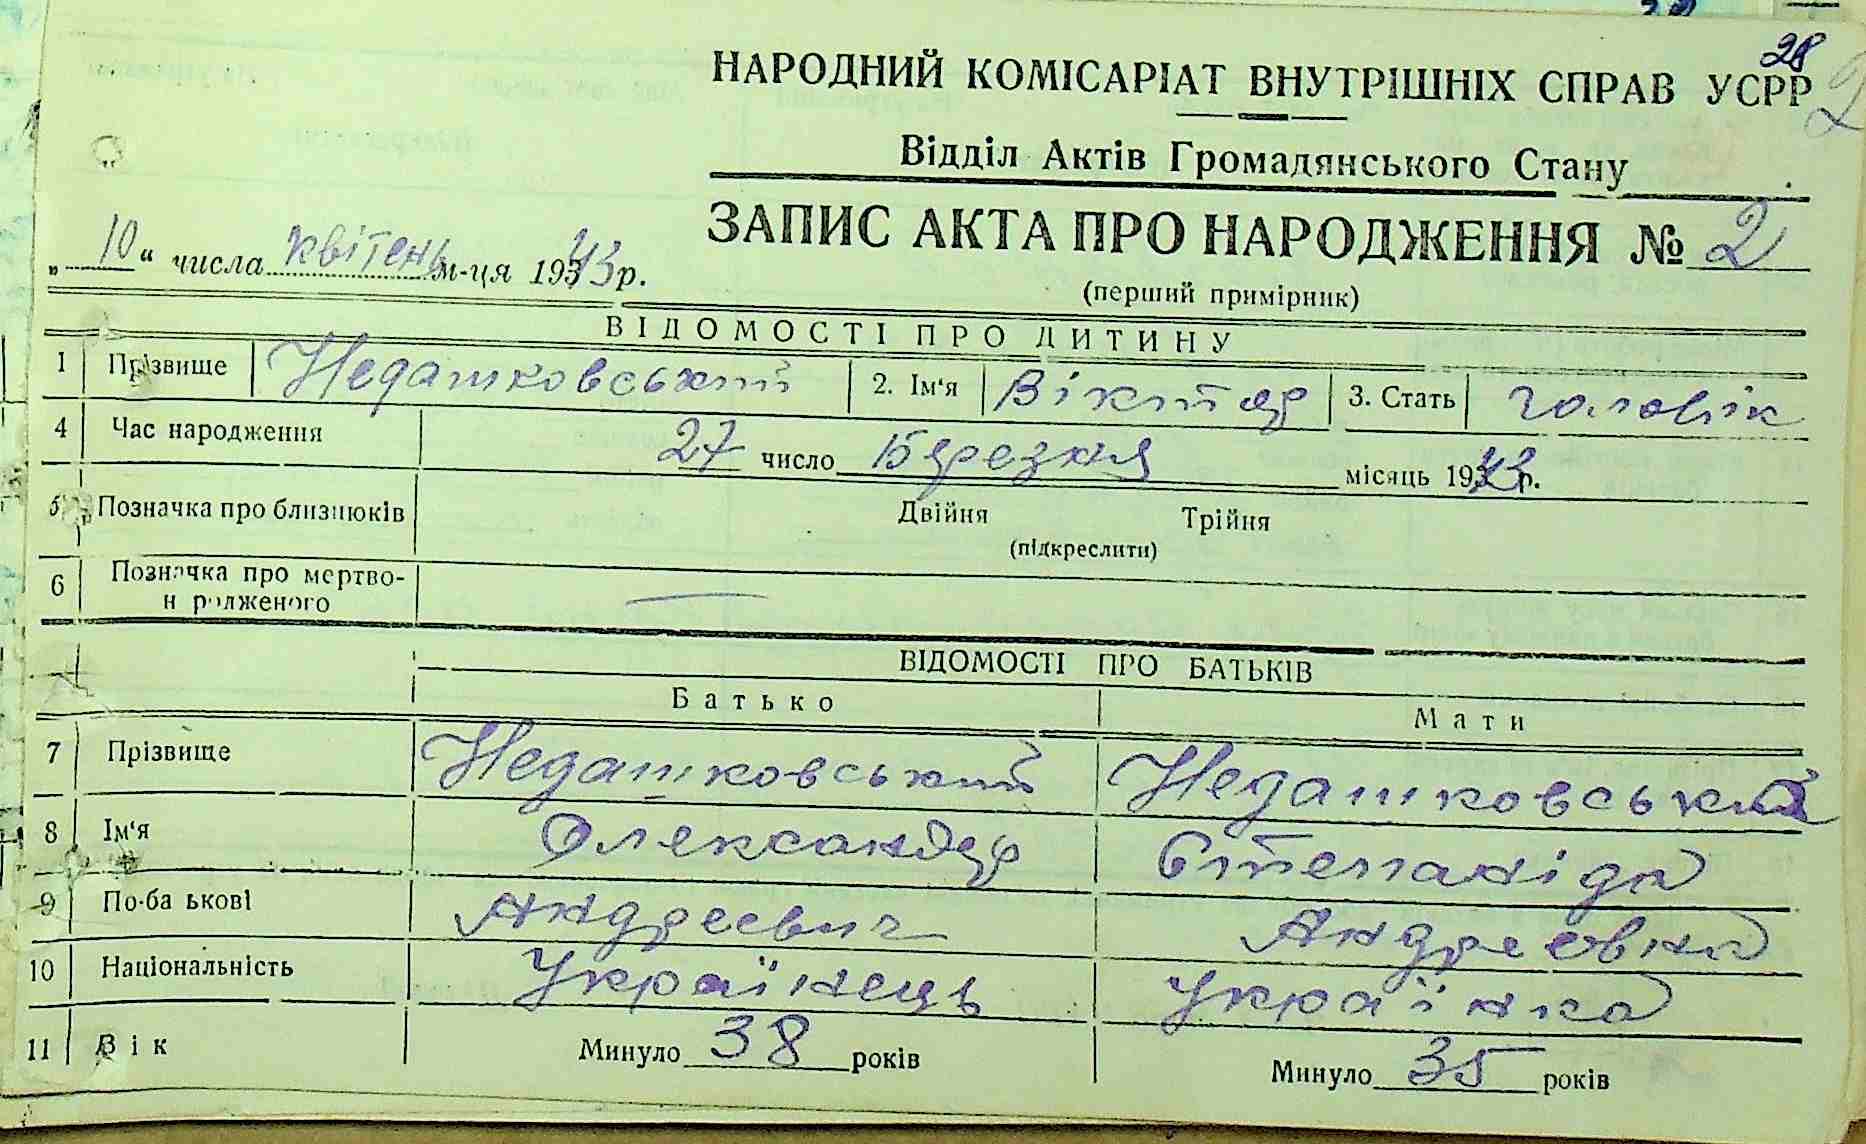 28
НАРОДНИЙ КОМІСАРІАТ ВНУТРІШНІХ СПРАВ УСРР 2
Відділ Актів Громадянського Стану
ЗАПИС АКТА ПРО НАРОДЖЕННЯ № 2
„10“ числа квітень м-ця 1943 р.
(перший примірник)
ВІДОМОСТІ ПРО ДИТИНУ
1 Прізвище Недашковський 2. Ім'я Віктор 3. Стать чоловік
4 Час народження 27 число Березня місяць 1943 р.
5 Позначка про близнюків Двійня Трійня
(підкреслити)
6 Позначка про мертво-
н родженого
ВІДОМОСТІ ПРО БАТЬКІВ
Батько Мати
7 Прізвище Недашковський Недашковська
8 Ім'я Олександр Степаніда
9 По-ба ькові Андреєвич Андреєвна
10 Національність Українець Українка
11 Вік Минуло 38 років Минуло 35 років